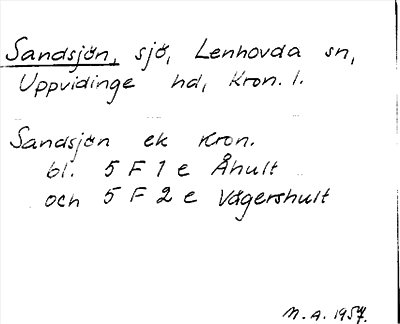 Sandsjön, sjö, Lenhovda sn,
Uppvidinge hd, Kron. l.
Sandsjön ek Kron.
bl. 5 F 1 e Åhult
och 5 F 2 e Vägershult
N. A. 1957.